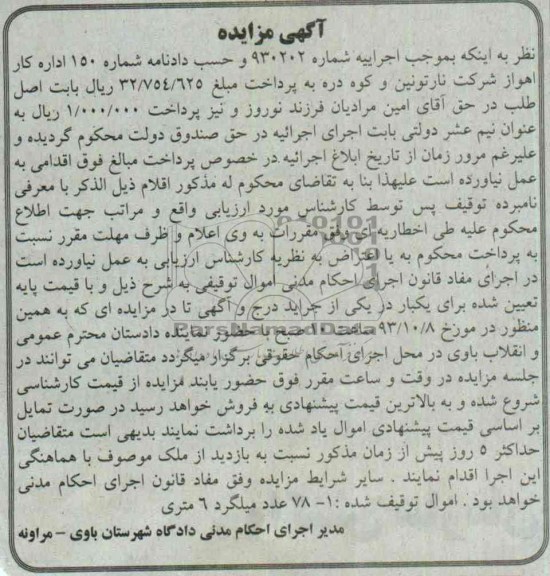 آگهی مزایده
نظر به اینکه بموجب اجراییه شماره ۹۳۰۲۰۲ و حسب دادنامه شماره ۱۵۰ اداره کار
اهواز شرکت نارتونین و کوه دره به پرداخت مبلغ ۳۲/۷۵٤/٦۲۵ ریال بابت اصل
طلب در حق آقای امین مرادیان فرزند نوروز و نیز پرداخت ۱/۰۰۰/۰۰۰ ریال به
عنوان نیم عشر دولتی بابت اجرای اجرائیه در حق صندوق دولت محکوم گردیده و
علیرغم مرور زمان از تاریخ ابلاغ اجرائیه در خصوص پرداخت مبالغ فوق اقدامی به
عمل نیاورده است علیهذا بنا به تقاضای محکوم له مذکور اقلام ذیل الذکر با معرفی
نامبرده توقیف پس توسط کارشناس مورد ارزیابی واقع و مراتب جهت اطلاع
محکوم علیه طی اخطاریه ای وفق مقررات به وی اعلام و ظرف مهلت مقرر نسبت
به پرداخت محکوم به یا اعتراض به نظریه کارشناس ارزیابی به عمل نیاورده است
در اجرای مفاد قانون اجرای احکام مدنی اموال توقیفی به شرح ذیل و با قیمت پایه
تعیین شده برای یکبار در یکی از جراید درج و آگهی تا در مزایده ای که به همین
منظور در مورخ ۹۳/۱۰/۸ ساعت ۱۰ صبح با حضور نماینده دادستان محترم عمومی
و انقلاب باوی در محل اجرای احکام حقوقی برگزار میگردد متقاضیان می توانند در
جلسه مزایده در وقت و ساعت مقرر فوق حضور یابند مزایده از قیمت کارشناسی
شروع شده و به بالاترین قیمت پیشنهادی به فروش خواهد رسید در صورت تمایل
بر اساسی قیمت پیشنهادی اموال یاد شده را برداشت نمایند بدیهی است متقاضیان
حداکثر ۵ روز پیش از زمان مذکور نسبت به بازدید از ملک موصوف با هماهنگی
این اجرا اقدام نمایند . سایر شرایط مزایده وفق مفاد قانون اجرای احکام مدنی
خواهد بود . اموال توقیف شده :۱- ۷۸ عدد میلگرد ٦ متری
مدیر اجرای احکام مدنی دادگاه شهرستان باوی – مراونه
ParsNamadData